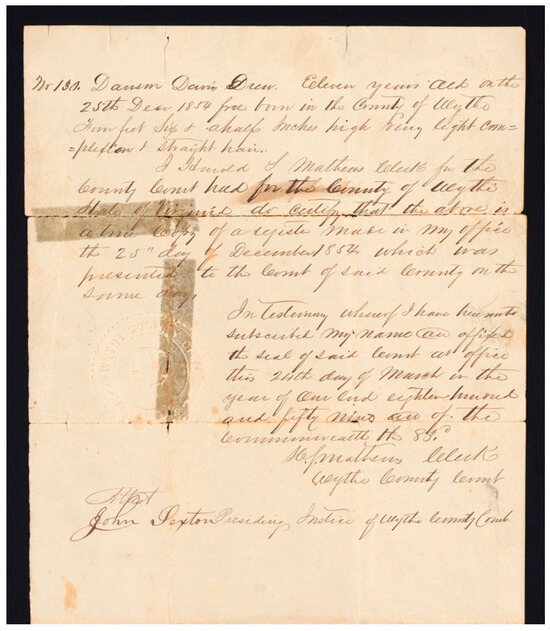 No 132. Dawson Davis Drew. Eleven years old on the
25th Decr 1854 free born in the County of Wythe
Four feet Six & a half Inches high very light com=
=plexion & Straight hair.
I Harold S Mathews Clerk for the
County Court held for the County of Wythe
State of Virginia do certify that the above is
a true Copy of a register made in my office
the 25th day of December 1854 which was
presented to the Court of said County on the
same day.
In testimony whereof I have hereunto
subscribed my name and affixed
the seal of said Court at office
this 24th day of March in the
year of Our Lord eighteen hundred
and fifty nine and of the
Commonwealth the 83d
H. S. Mathews Clerk
Wythe County Court
Attest
John Sexton Presiding Justice of Wythe County Court